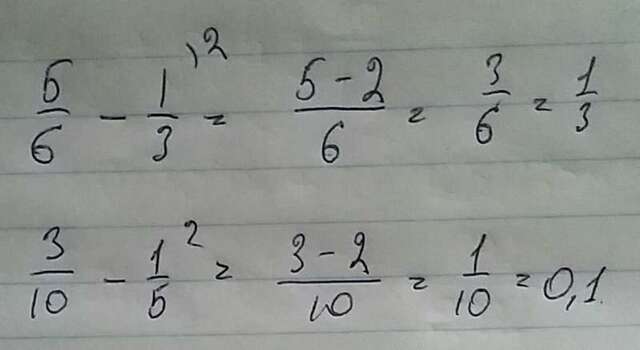 5/6 - 1/3 ^{,2} = (5-2)/6 = 3/6 = 1/3
3/10 - 1/5 ^{2} = (3-2)/10 = 1/10 = 0,1